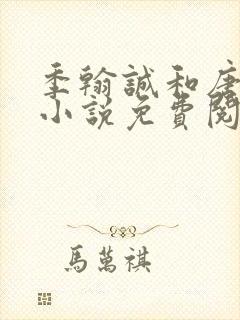 季翰誠和唐
小說免費閱
馬萬祺